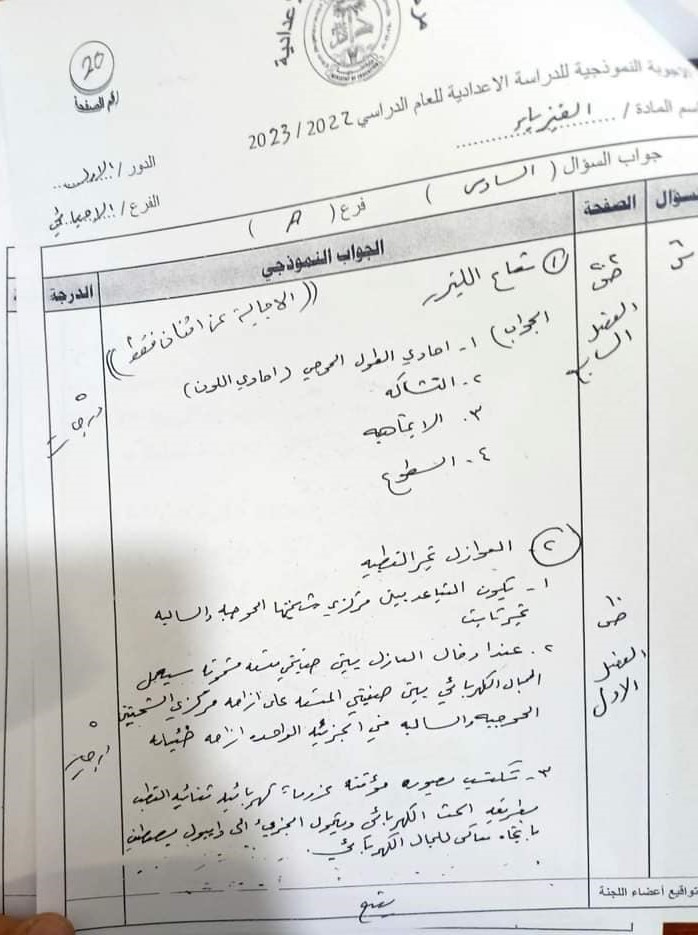 20
رقم الصفحة
الاجوبة النموذجية للدراسة الاعدادية للعام الدراسي 2022 / 2023
اسم المادة / الفيزياء
الدور / الاول
الفرع / الاحيائي
جواب السؤال ( السادس ) فرع ( A )
السؤال الصفحة الجواب النموذجي الدرجة
① شعاع الليزر
(( الاجابة عن اثنان فقط ))
الجواب) ١- احادي الطول الموجي (احادي اللون)
٢- التشاكه
٣. الاتجاهيه
٤- السطوع
٥ درجات
ص
الفصل السابع
② العوازل غير القطبيه
١- يكون التباعد بين مركزي شحنتها الموجبه والسالبه
غير ثابت
٢. عند ادخال العازل بين صفيحتي متسعه مشحونة سيعمل
المجال الكهربائي بين صفيحتي المتسعه على ازاحه مركزي الشحنتين
الموجبه والسالبه في الجزيئيه الواحده ازاحه ضئيله
٣- تكتسب بصوره مؤقته عزوما كهربائيه ثنائيه القطب
بطريقه الحث الكهربائي ويتحول الجزيء الى دايبول يصطف
باتجاه معاكس للمجال الكهربائي.
٥ درجات
ص ١٠
الفصل الاول
يتبع
تواقيع أعضاء اللجنة